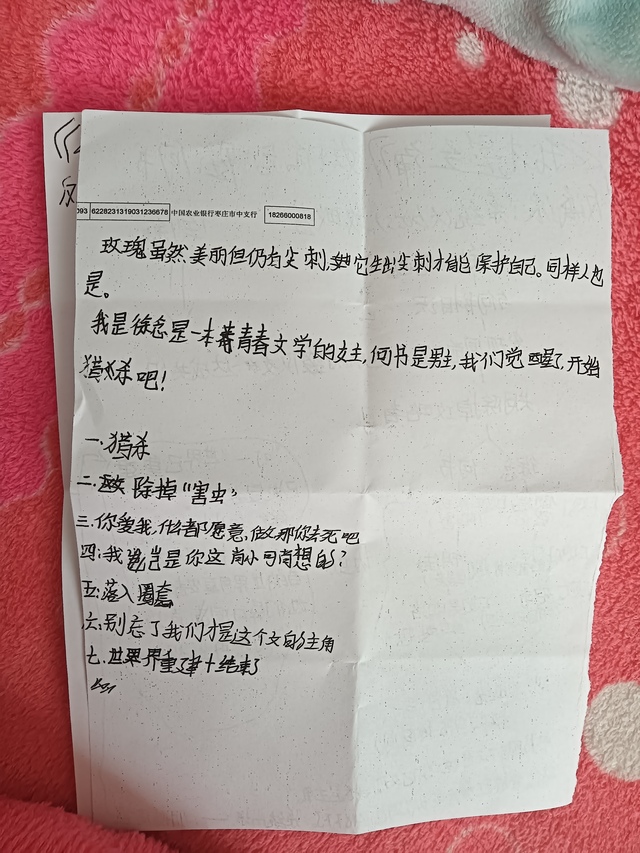 093 6228231319031236678 中国农业银行枣庄市中支行 18266000818
玫瑰虽然美丽但仍有尖刺,它生出尖刺才能保护自己。同样人也
是。
我是徐念是一本青春文学的女主,何书是男主,我们觉醒了,开始
猎杀吧!
一.猎杀
二.除掉“害虫”
三.你爱我,什么都愿意做,那你去死吧
四:我岂是你这肖想的?
五:落入圈套
六:别忘了我们才是这个文的主角
七.世界重建+结束了